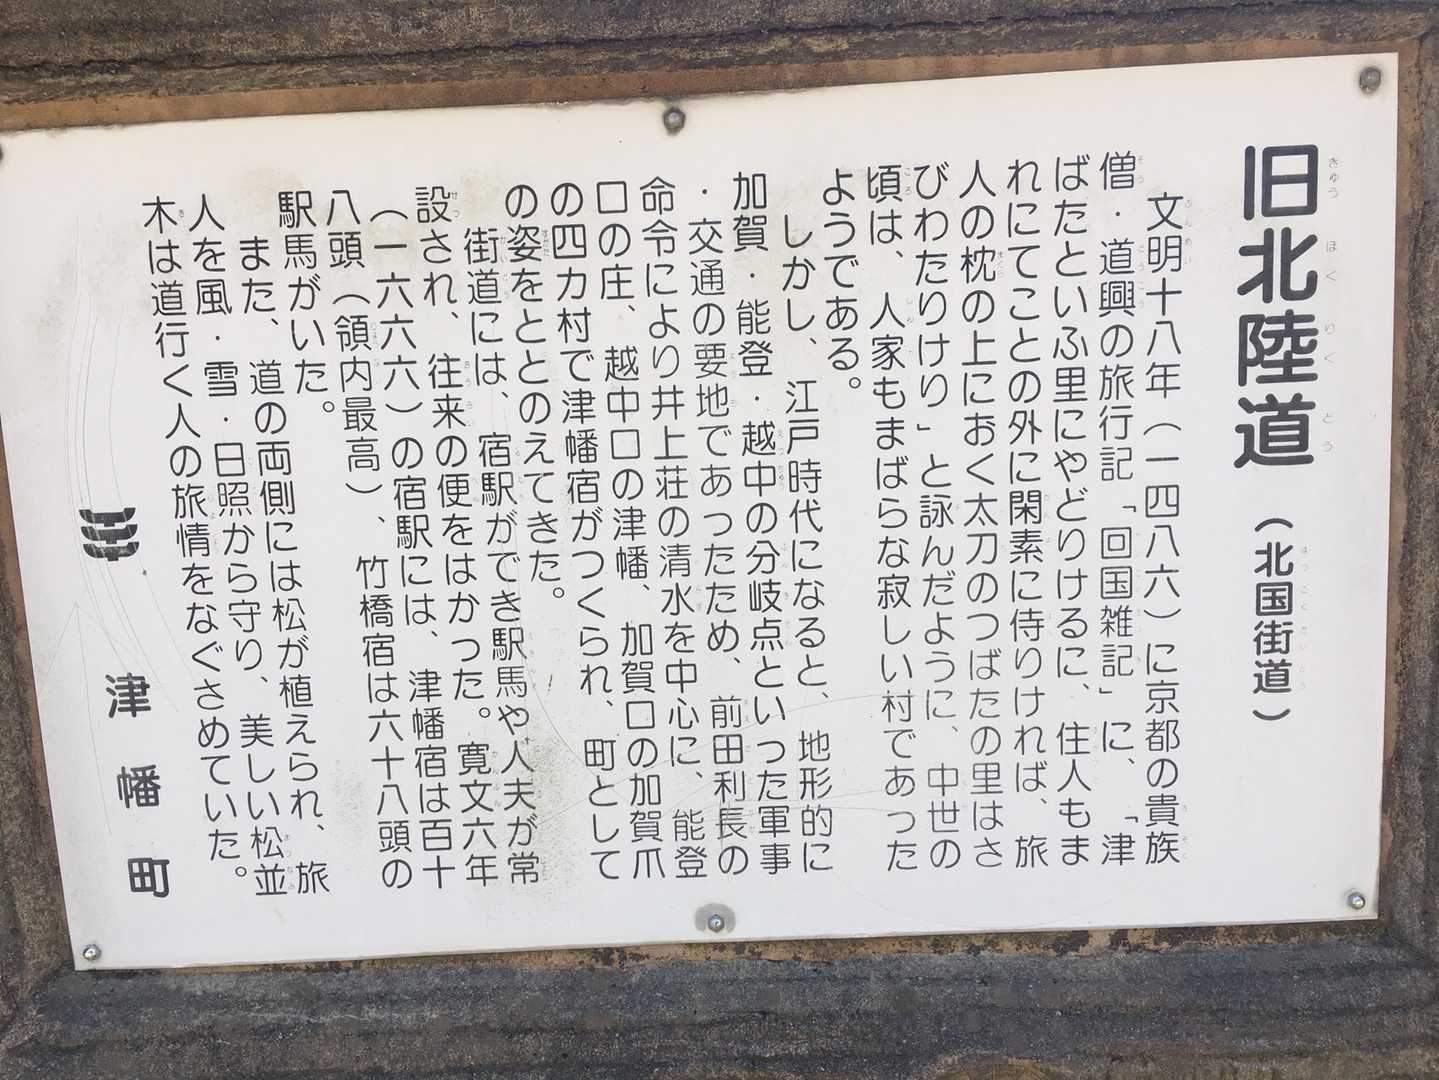 旧北陸道（北国街道）
文明十八年（一四八六）に京都の貴族
僧・道興の旅行記「回国雑記」に、「津
ばたといふ里にやどりけるに、住人もま
れにてことの外に閑素に侍りければ、旅
人の枕の上におく太刀のつばたの里はさ
びわたりけり」と詠んだように、中世の
頃は、人家もまばらな寂しい村であった
ようである。
しかし、江戸時代になると、地形的に
加賀・能登・越中の分岐点といった軍事
・交通の要地であったため、前田利長の
命令により井上荘の清水を中心に、能登
口の庄、越中口の津幡、加賀口の加賀爪
の四カ村で津幡宿がつくられ、町として
の姿をととのえてきた。
街道には、宿駅ができ駅馬や人夫が常
設され、往来の便をはかった。寛文六年
（一六六六）の宿駅には、津幡宿は百十
八頭（領内最高）、竹橋宿は六十八頭の
駅馬がいた。
また、道の両側には松が植えられ、旅
人を風・雪・日照から守り、美しい松並
木は道行く人の旅情をなぐさめていた。
津幡町